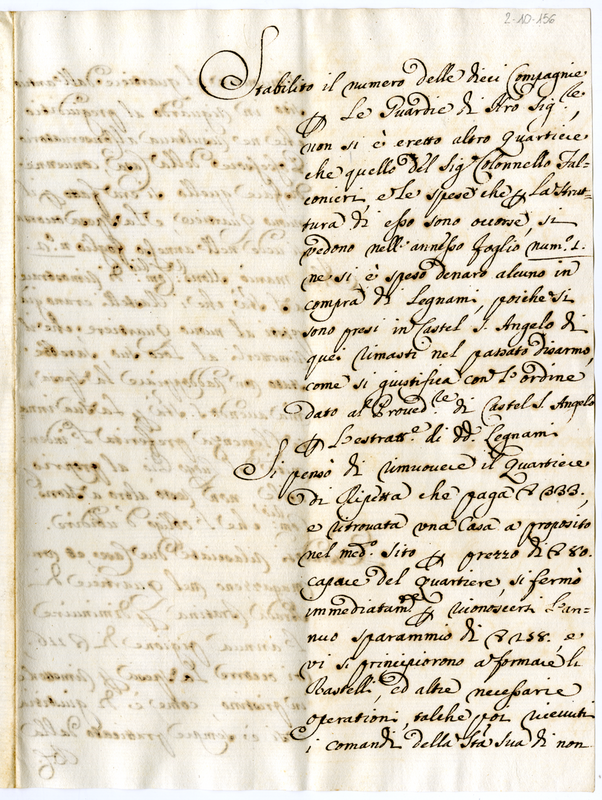 2-10-156
Stabilito il numero delle dieci Compagnie
℘ Le Guardie di Nro Sigre,
non si è eretto altro quartiere
che quello del Sigr Colonnello Fal-
conieri, e le spese che ℘ La strut-
tura di esso sono occorse, si
vedono nell'annesso foglio num.o 1.
ne si è speso denaro alcuno in
compra di Legnami, poiche si
sono presi in Castel S. Angelo di
quei rimasti nel passato disarmo,
come si giustifica con L'ordine
dato al Proved.re di Castel S. Angelo
℘ L'estratt.e di dd. Legnami
Si pensò di rimuovere il Quartiere
di Ripetta che paga 333.,
e ritrovata una Casa a proposito
nel med.o Sito ℘ prezzo di 80.
capace del quartiere, si fermò
immediatam.te ℘ riconoscersi L'an-
nuo sparammio di 258. e
vi si principiorono a formare li
Rastelli, ed altre necessarie
operationi, talche poi ricevuti
i comandi della Stà Sua di non